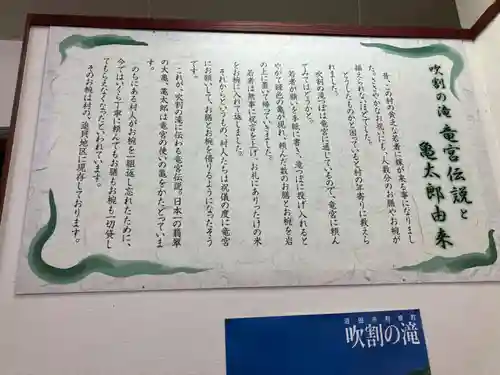 吹割の滝 竜宮伝説と
亀太郎由来
昔、この村の貧乏な若者に嫁が来る事になりまし
た。ささやかなお祝いにも、人数分のお膳やお椀が
揃えられないほどでした。
どうしたものかと困っていると村の年寄りに教えら
れました。
吹割の滝つぼは竜宮に通じているので、竜宮に頼ん
でみてはどうかと。
若者が願いを手紙に書き、滝つぼに投げ入れると
やがて緑色の亀が現れ、頼んだ数のお膳とお椀を岩
の上に置き帰っていきました。
若者は無事に祝言を上げ、お礼にありったけの米
をお椀に入れて返しました。
それからというもの、村人たちは祝儀の度に竜宮
にお願いして、お膳とお椀を借りるようになったそう
です。
これが、吹割の滝に伝わる竜宮伝説。日本一の翡翠
の大亀、亀太郎は竜宮の使いの亀をかたどっていま
す。
のちにある村人がお椀を一組返し忘れたために、
今ではいくら丁寧に頼んでもお膳もお椀も一切貸し
てもらえなくなったといわれています。
そのお椀は村の、追貝地区に現存しております。
吹割の滝